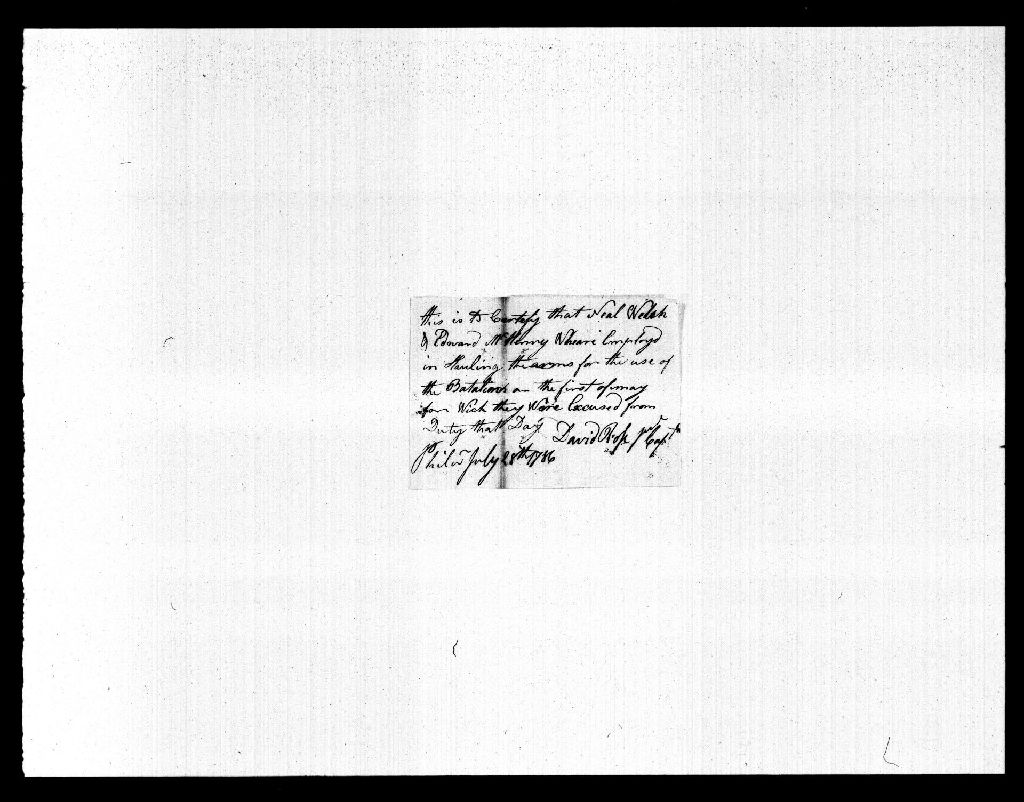 this is to Certefy that Neal Welsh
& Edward McHenry Wheare Employd
in Hauling the arms for the use of
the Batalions on the first of may
for Wich they Were Excused from
Duty that Day
David Rose Capt
Philad July 28th 1786